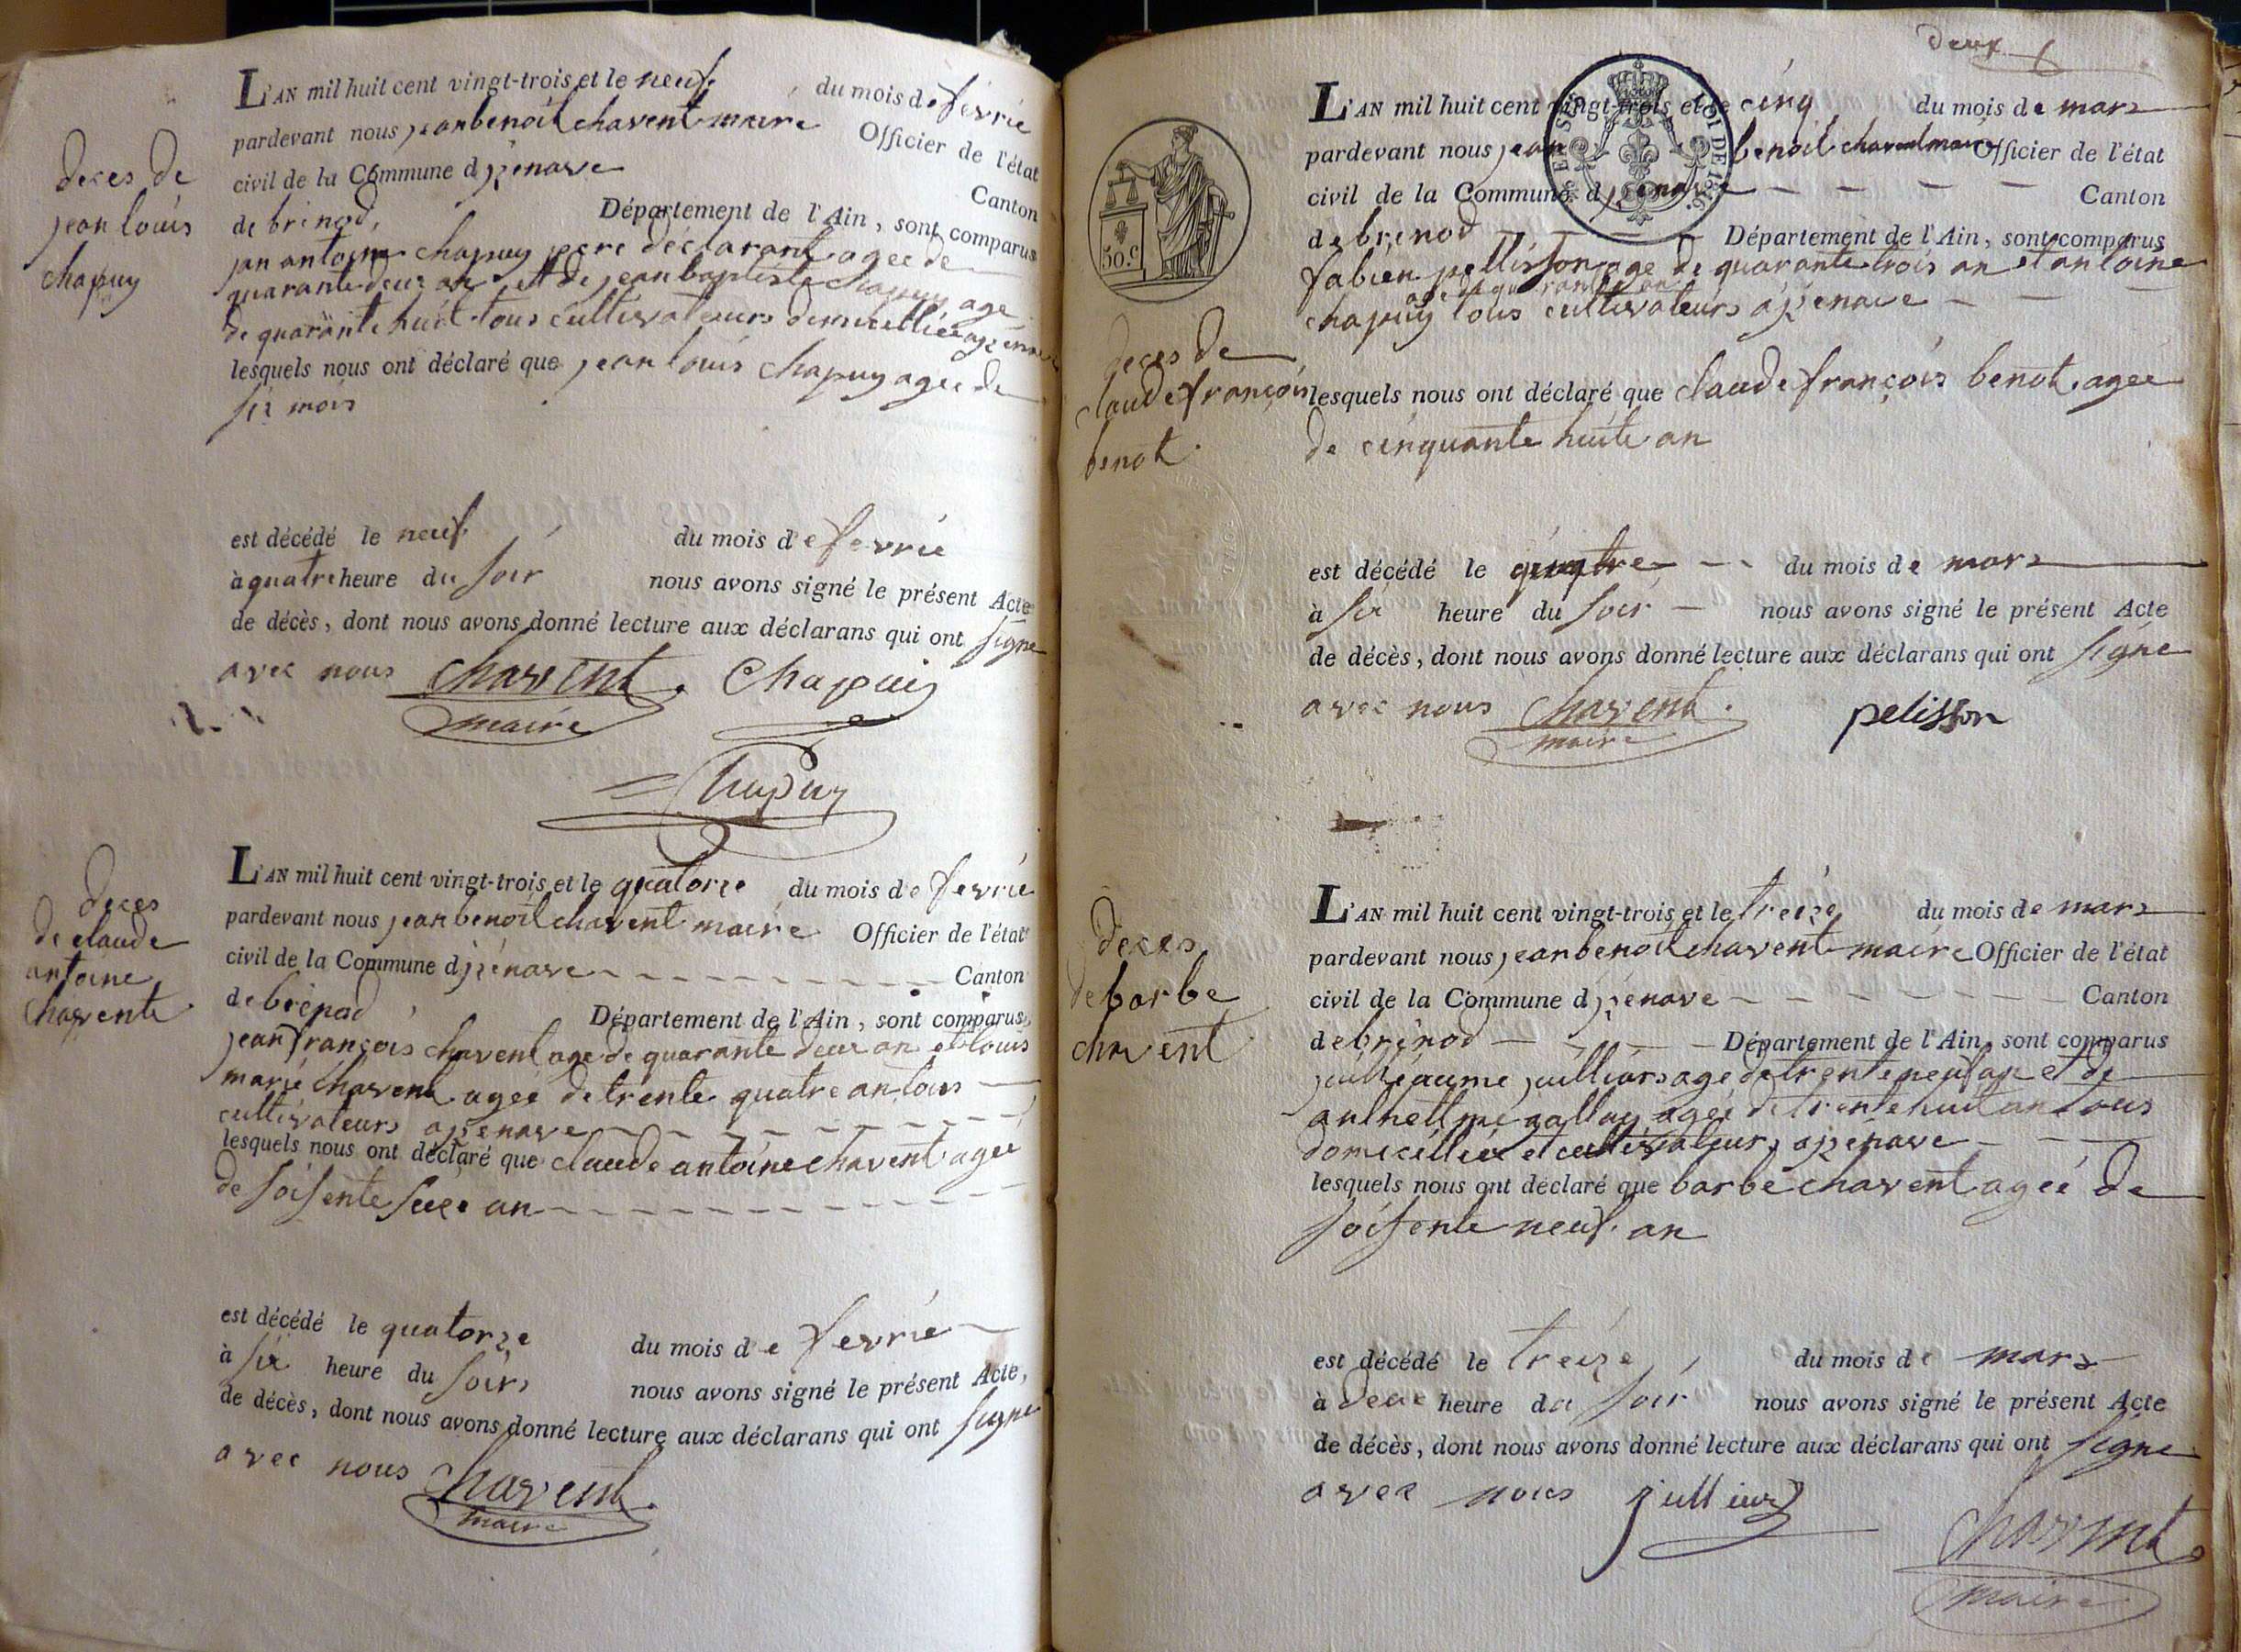 L'AN mil huit cent vingt-trois et le neuf du mois de fevrié
pardevant nous jean benoit chavent maire Officier de l'état
civil de la Commune d izenave Canton
de brinod, Département de l'Ain, sont comparus
jan antoine chapuy pere déclarant agee de
quarante deux an et de jean baptiste chapuy age
de quarante huit tous cultivateurs domicilliée a izenave
lesquels nous ont déclaré que jean louis chapuy agee de
six mois
deces de
jean louis
chapuy
est décédé le neuf du mois de fevrié
à quatre heure du soir nous avons signé le présent Acte
de décès, dont nous avons donné lecture aux déclarans qui ont signe
avec nous chavent Chapuis
maire
Chapuy
deces
de claude
antoine
chavente
L'AN mil huit cent vingt-trois et le quatorze du mois de fevrié
pardevant nous jean benoit chavent maire Officier de l'état
civil de la Commune d izénave Canton
de brénod Département de l'Ain, sont comparus
jean françois chavent age de quarante deux an et louis
marie chavent agée de trente quatre an tous
cultivateurs a izenave
lesquels nous ont déclaré que claude antoine chavent agée
de soisente seize an
est décédé le quatorze du mois de fevrié
à six heure du soirs nous avons signé le présent Acte,
de décès, dont nous avons donné lecture aux déclarans qui ont signe
avec nous chavent
maire
deux
L'AN mil huit cent vingt-trois et le cinq du mois de mars
pardevant nous jean benoit chavent maire Officier de l'état
civil de la Commune d izenave Canton
de brénod Département de l'Ain, sont comparus
fabien pellisson age de quarante trois an et antoine
chapuy tous cultivateurs a izenave
50.c
LOI DE 1816.
deces de
claude françois
benot
lesquels nous ont déclaré que claude françois benot agée
de cinquante huite an
est décédé le quatre du mois de mars
à six heure du soir nous avons signé le présent Acte
de décès, dont nous avons donné lecture aux déclarans qui ont signe
avec nous chavent pelisson
maire
deces
de barbe
chavent
L'AN mil huit cent vingt-trois et le treize du mois de mars
pardevant nous jean benoit chavent maire Officier de l'état
civil de la Commune d izénave Canton
de brénod Département de l'Ain, sont comparus
age de trente neuf an et de
agée de trente huit an tous
domicilliée et cultivateurs a izénave
lesquels nous ont déclaré que barbe chavent agée de
soisente neuf an
est décédé le treize du mois de mars
à deux heure du soir nous avons signé le présent Acte
de décès, dont nous avons donné lecture aux déclarans qui ont signe
avec nous
chavent
maire